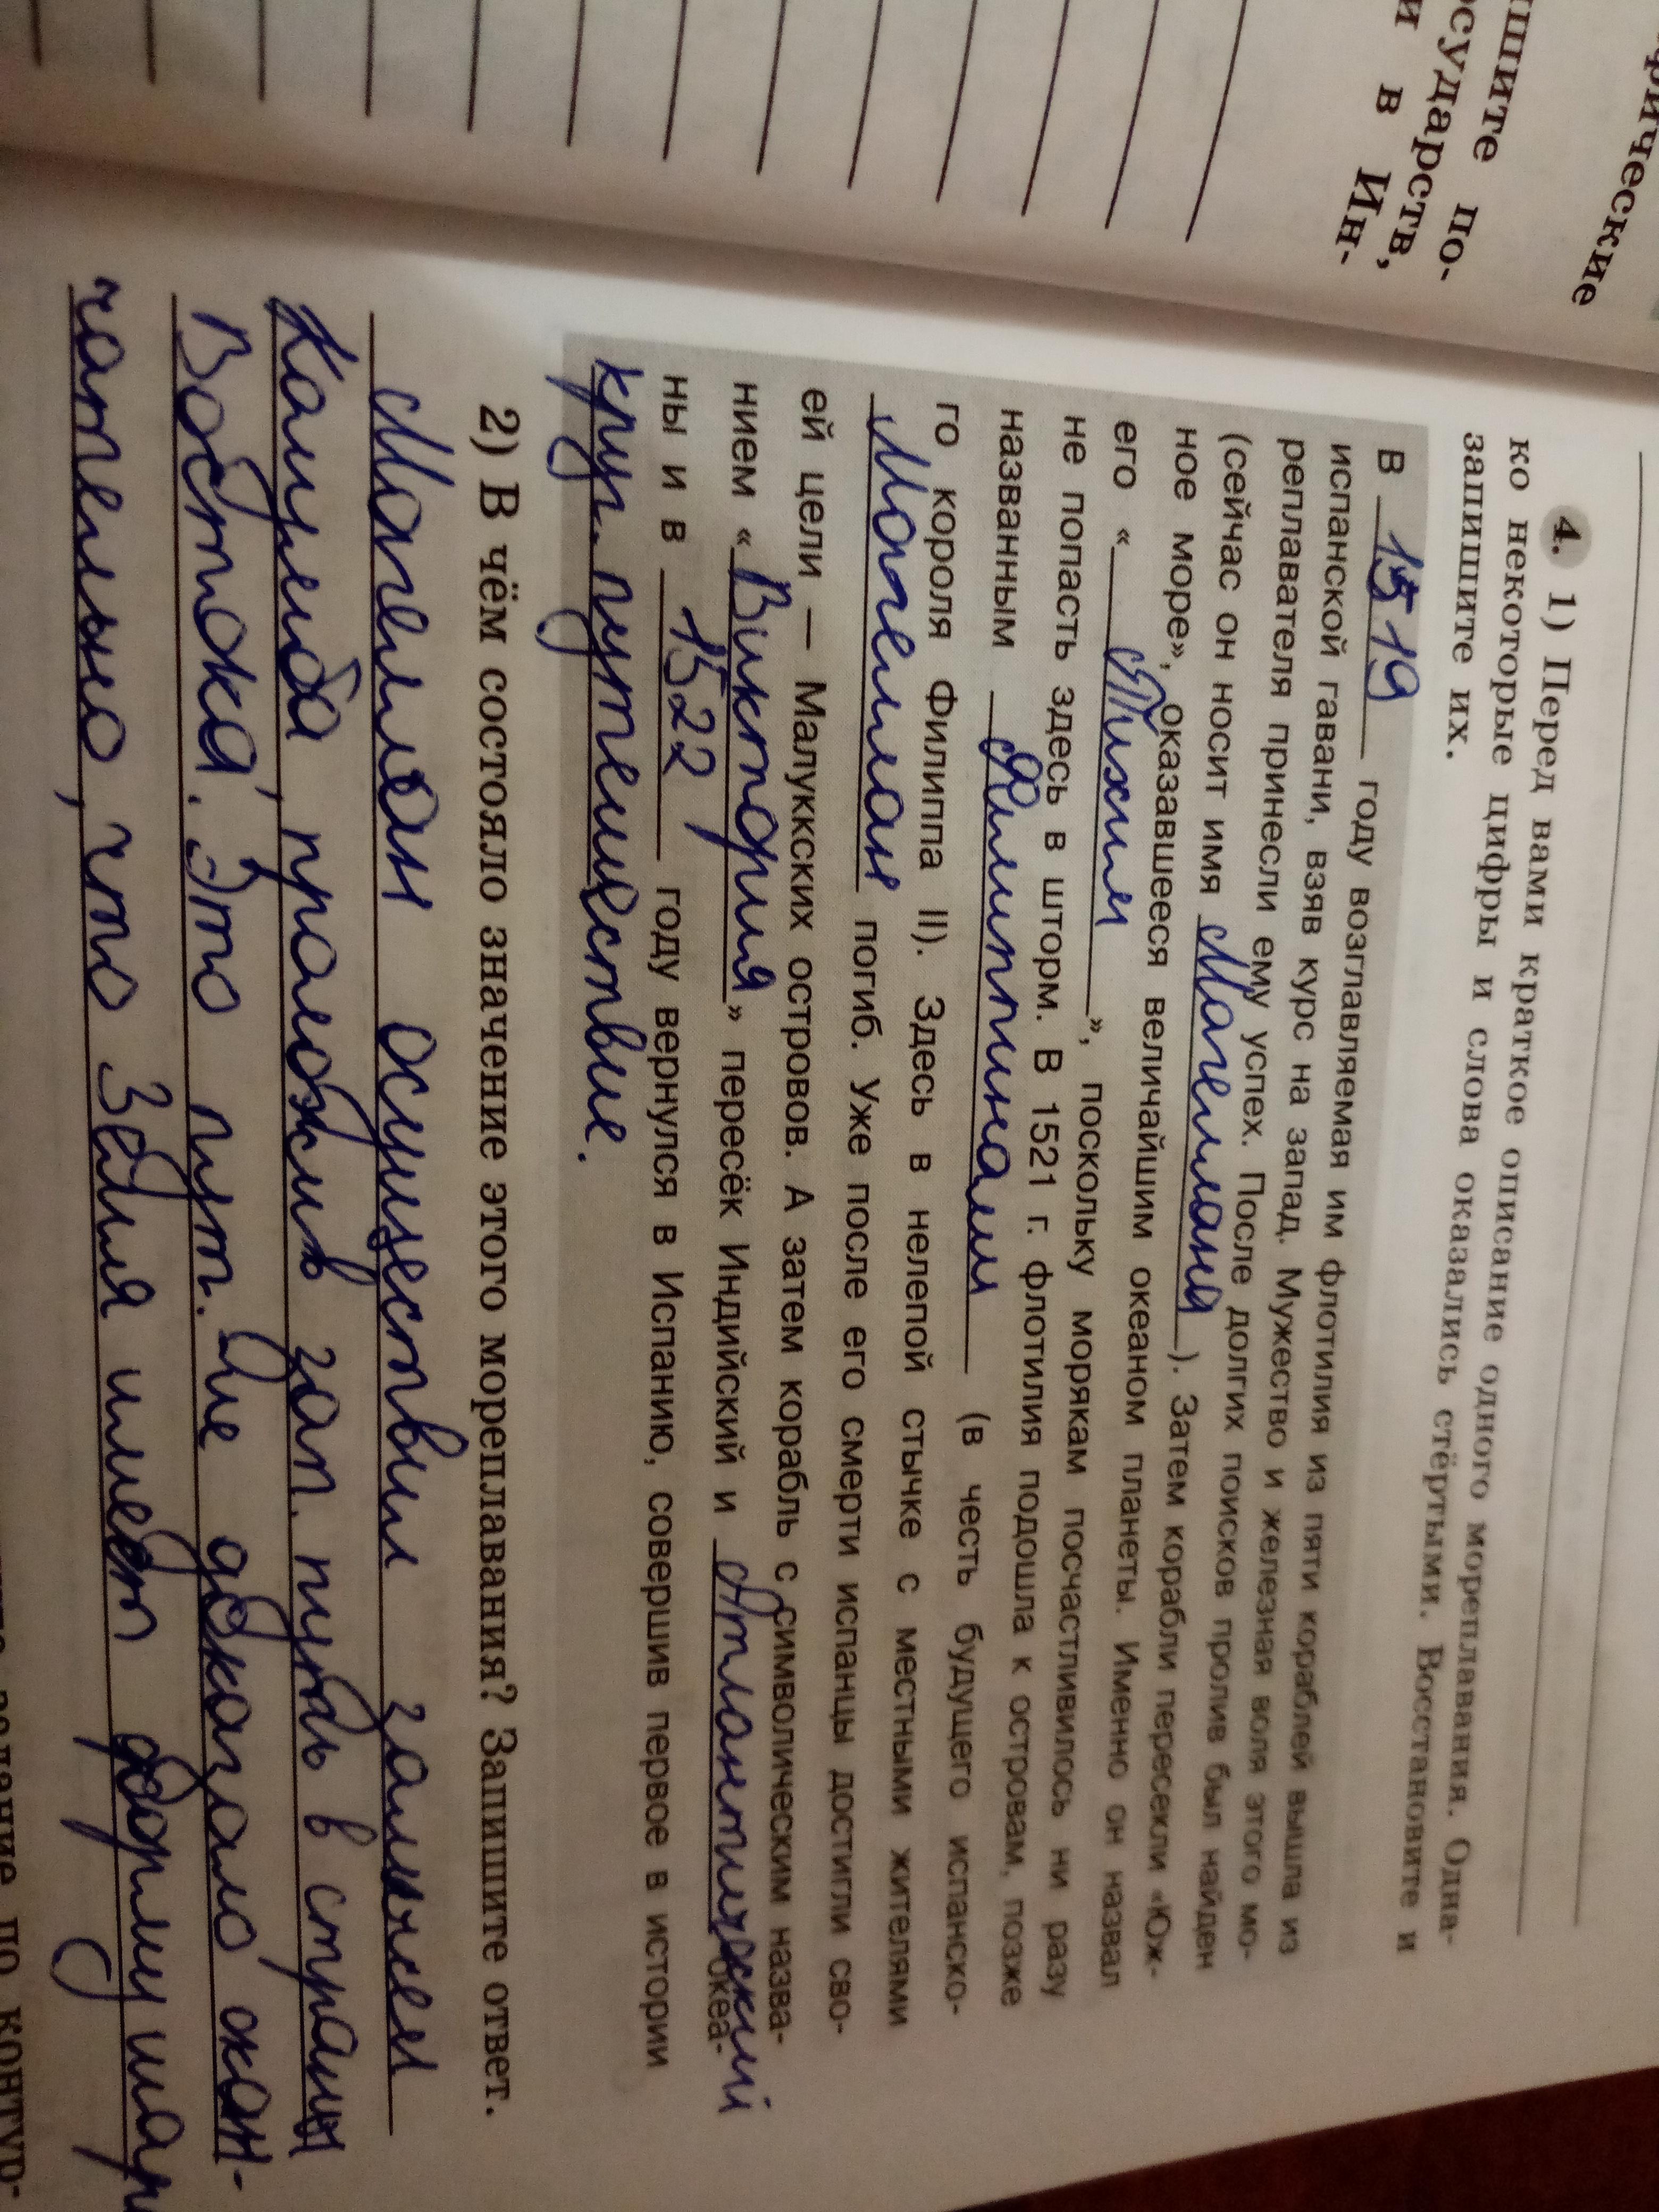 рические
пишите по-
осударств,
и в Ин-
4. 1) Перед вами краткое описание одного мореплавания. Одна-
ко некоторые цифры и слова оказались стёртыми. Восстановите и
запишите их.
В 1519 году возглавляемая им флотилия из пяти кораблей вышла из
испанской гавани, взяв курс на запад. Мужество и железная воля этого мо-
реплавателя принесли ему успех. После долгих поисков пролив был найден
(сейчас он носит имя Магеллана). Затем корабли пересекли «Юж-
ное море», оказавшееся величайшим океаном планеты. Именно он назвал
его «Тихим», поскольку морякам посчастливилось ни разу
не попасть здесь в шторм. В 1521 г. флотилия подошла к островам, позже
названным Филиппинами (в честь будущего испанско-
го короля Филиппа II). Здесь в нелепой стычке с местными жителями
Магеллан погиб. Уже после его смерти испанцы достигли сво-
ей цели — Малуккских островов. А затем корабль с символическим назва-
нием «Виктория» пересёк Индийский и Атлантический океа-
ны и в 1522 году вернулся в Испанию, совершив первое в истории
круг. путешествие.
2) В чём состояло значение этого мореплавания? Запишите ответ.
Магеллан осуществил замысел
Колумба, проложив зап. путь в страны
Востока. Это пут. же доказало окон-
чательно, что Земля имеет форму шара